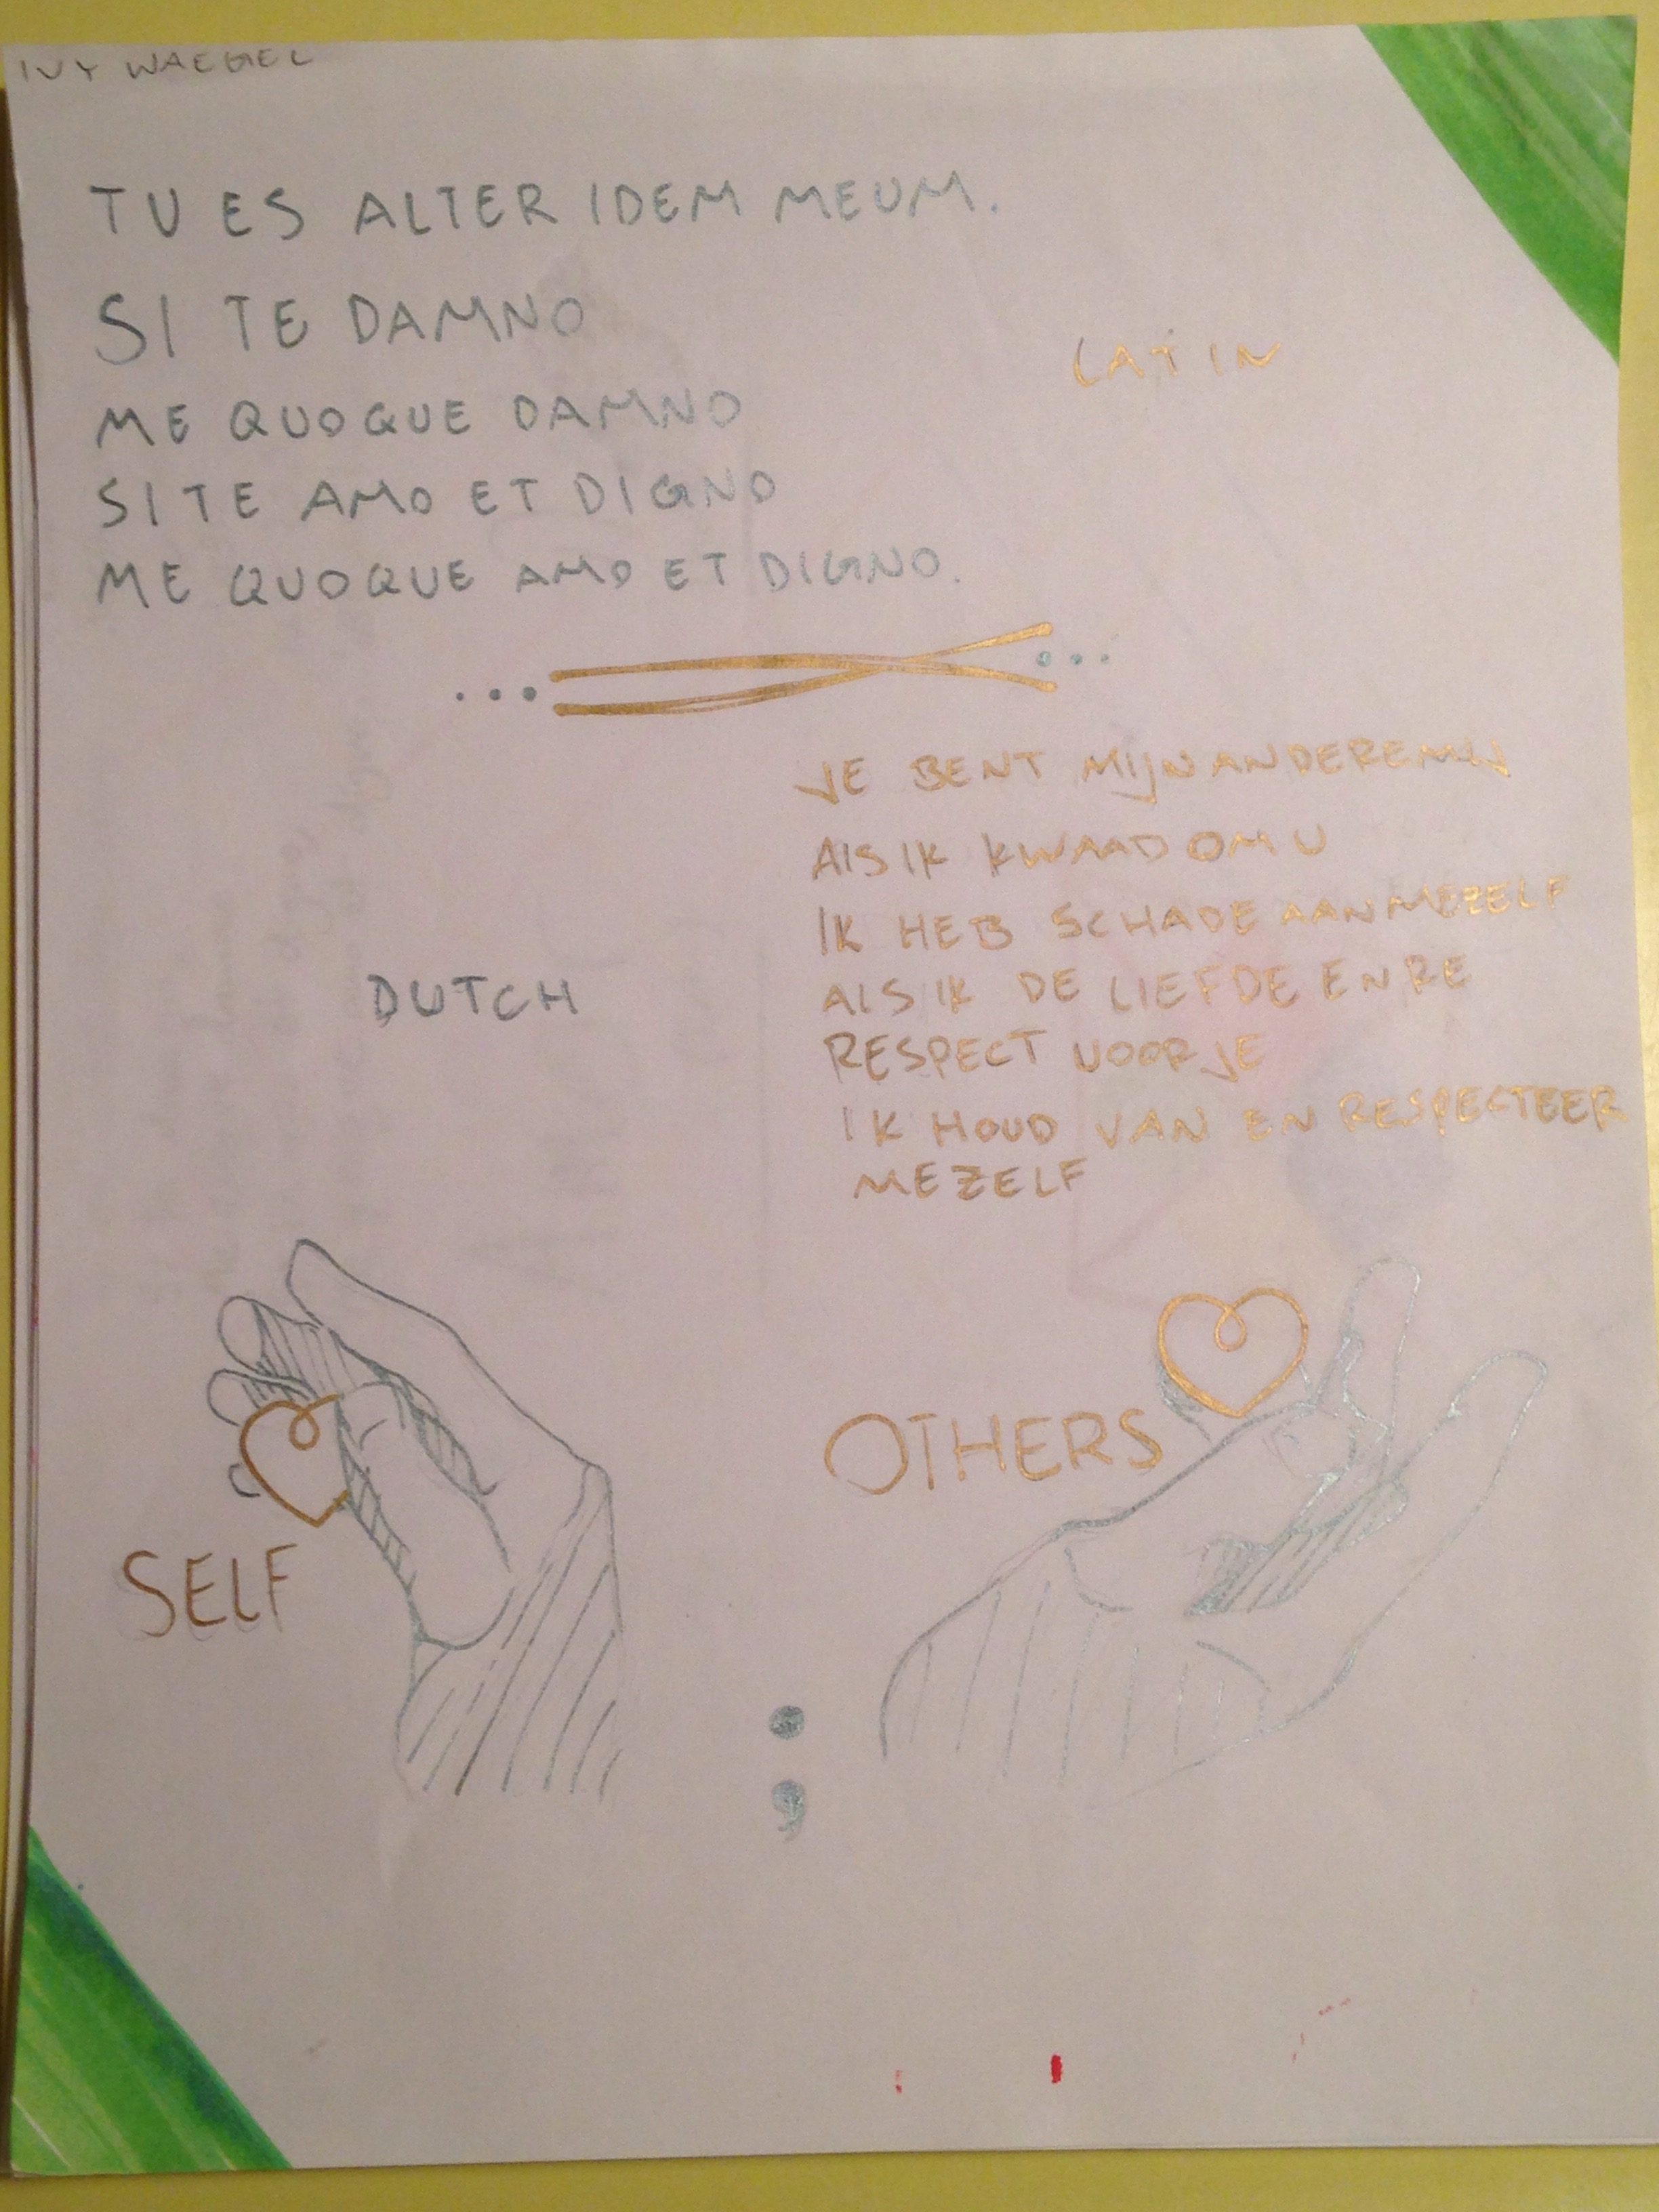 IVY WAEGEL
TU ES ALTER IDEM MEUM.
SI TE DAMNO
LATIN
ME QUOQUE DAMNO
SI TE AMO ET DIGNO
ME QUOQUE AMO ET DIGNO.
JE BENT MIJN ANDERE MIJ
ALS IK KWAAD OM U
IK HEB SCHADE AAN MEZELF
DUTCH
ALS IK DE LIEFDE EN RE
RESPECT VOOR JE
IK HOUD VAN EN RESPECTEER
MEZELF
OTHERS
SELF
;